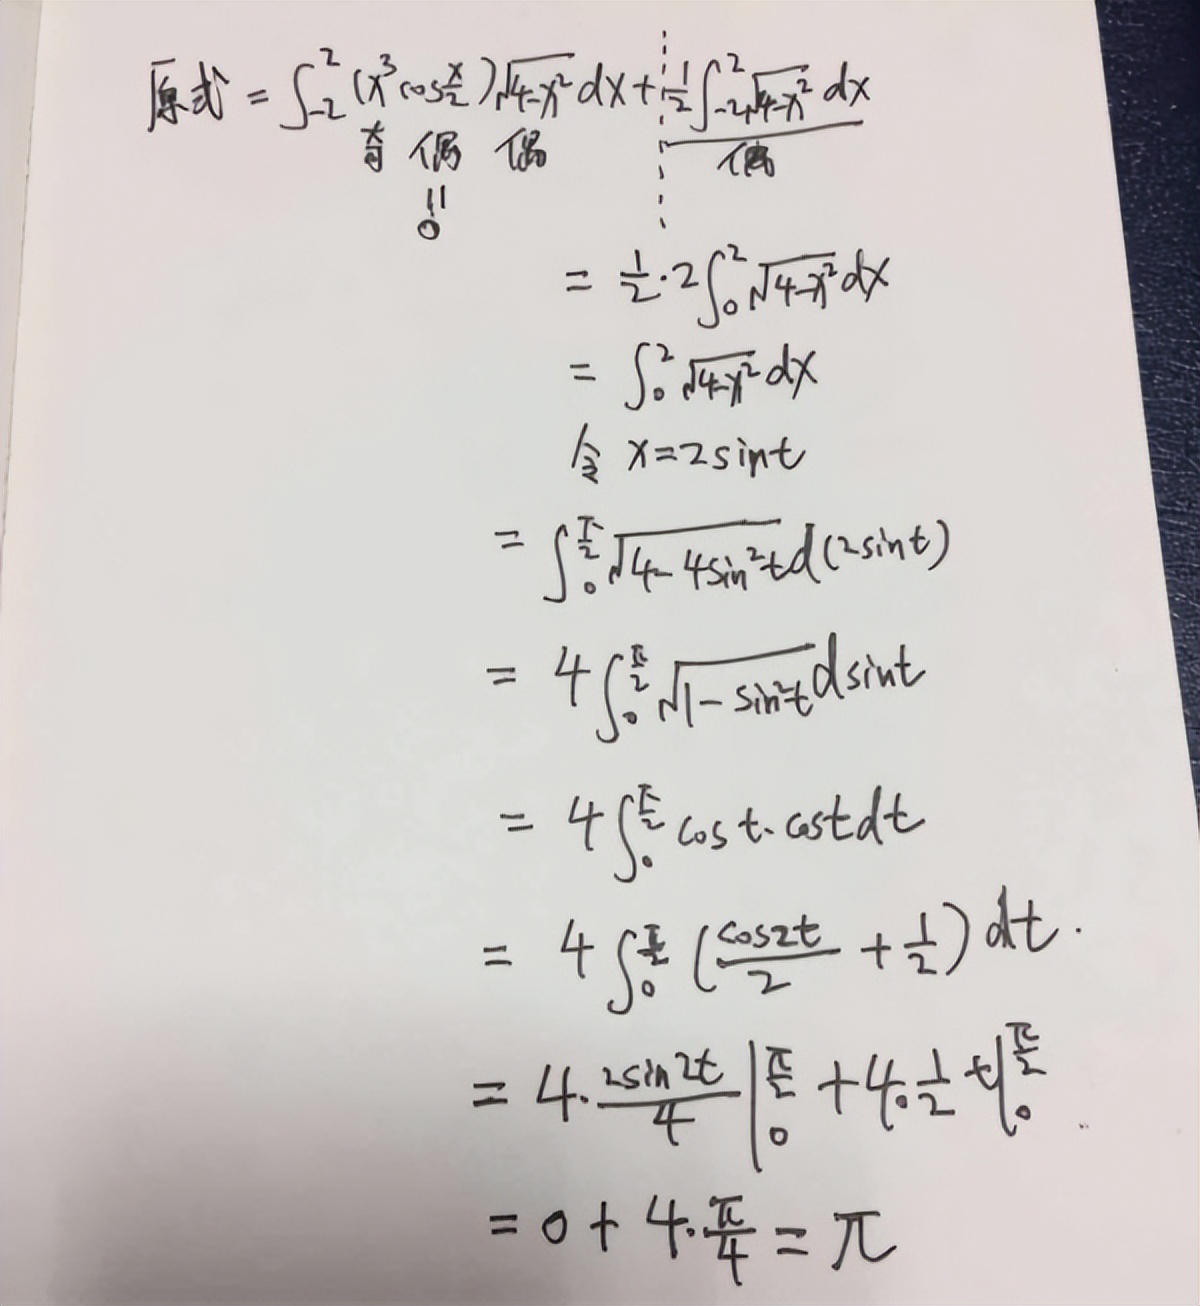 原式 = ∫₋₂² (x³cos x/2)√(4-x²) dx + 1/2 ∫₋₂² √(4-x²) dx
奇 偶 偶 偶
||
0
= 1/2 · 2 ∫₀² √(4-x²) dx
= ∫₀² √(4-x²) dx
令 x=2sint
= ∫₀^(π/2) √(4-4sin²t) d(2sint)
= 4 ∫₀^(π/2) √(1-sin²t) dsint
= 4 ∫₀^(π/2) cost·costdt
= 4 ∫₀^(π/2) (cos2t/2 + 1/2) dt.
= 4· 2sin2t/4 |₀^(π/2) + 4· 1/2 t|₀^(π/2)
= 0 + 4· π/4 = π